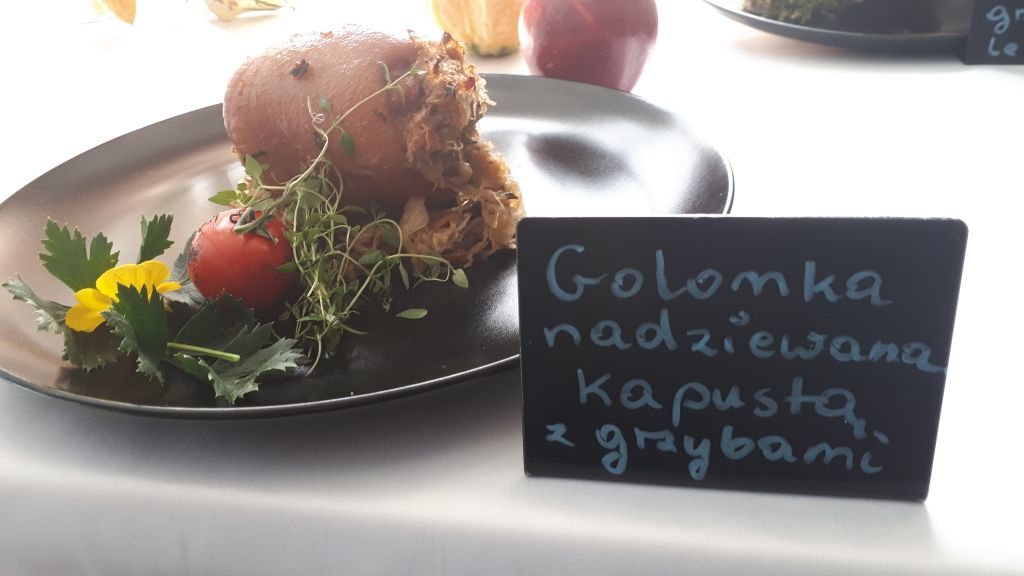 Golonka
nadziewana
kapustą
z grzybami
gr
le